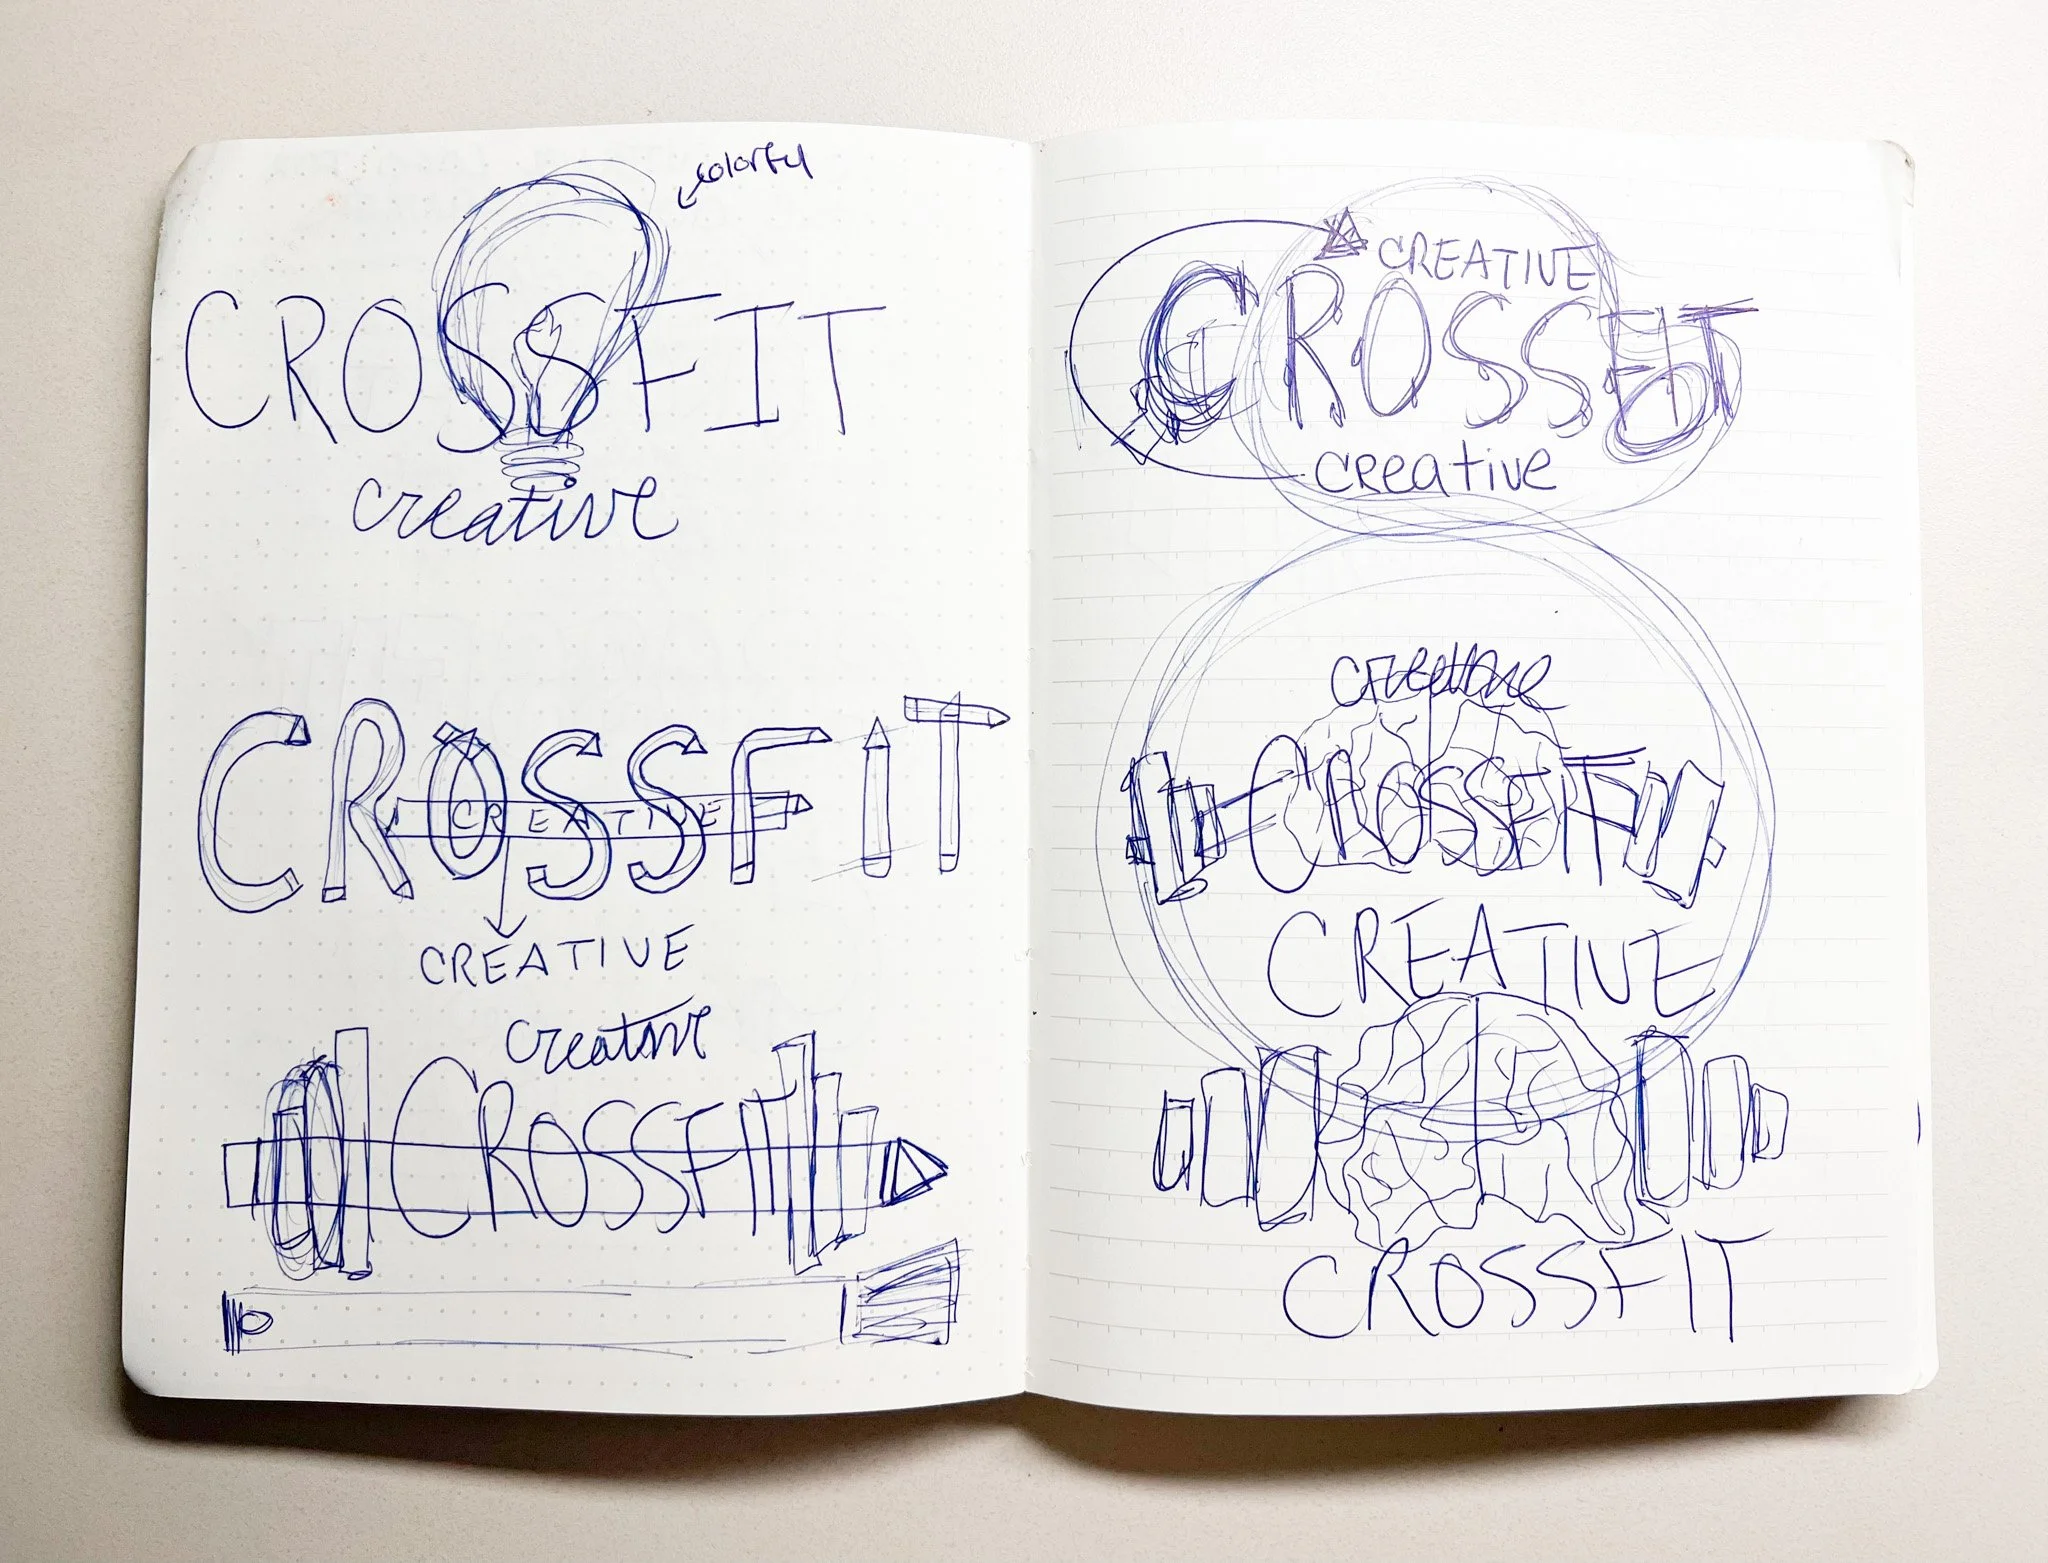 colorful
CROSSFIT
creative
CROSSFIT
CREATIVE
CREATIVE
creative
CROSSFIT
CREATIVE
CROSSFIT
creative
creative
CROSSFIT
CREATIVE
CROSSFIT